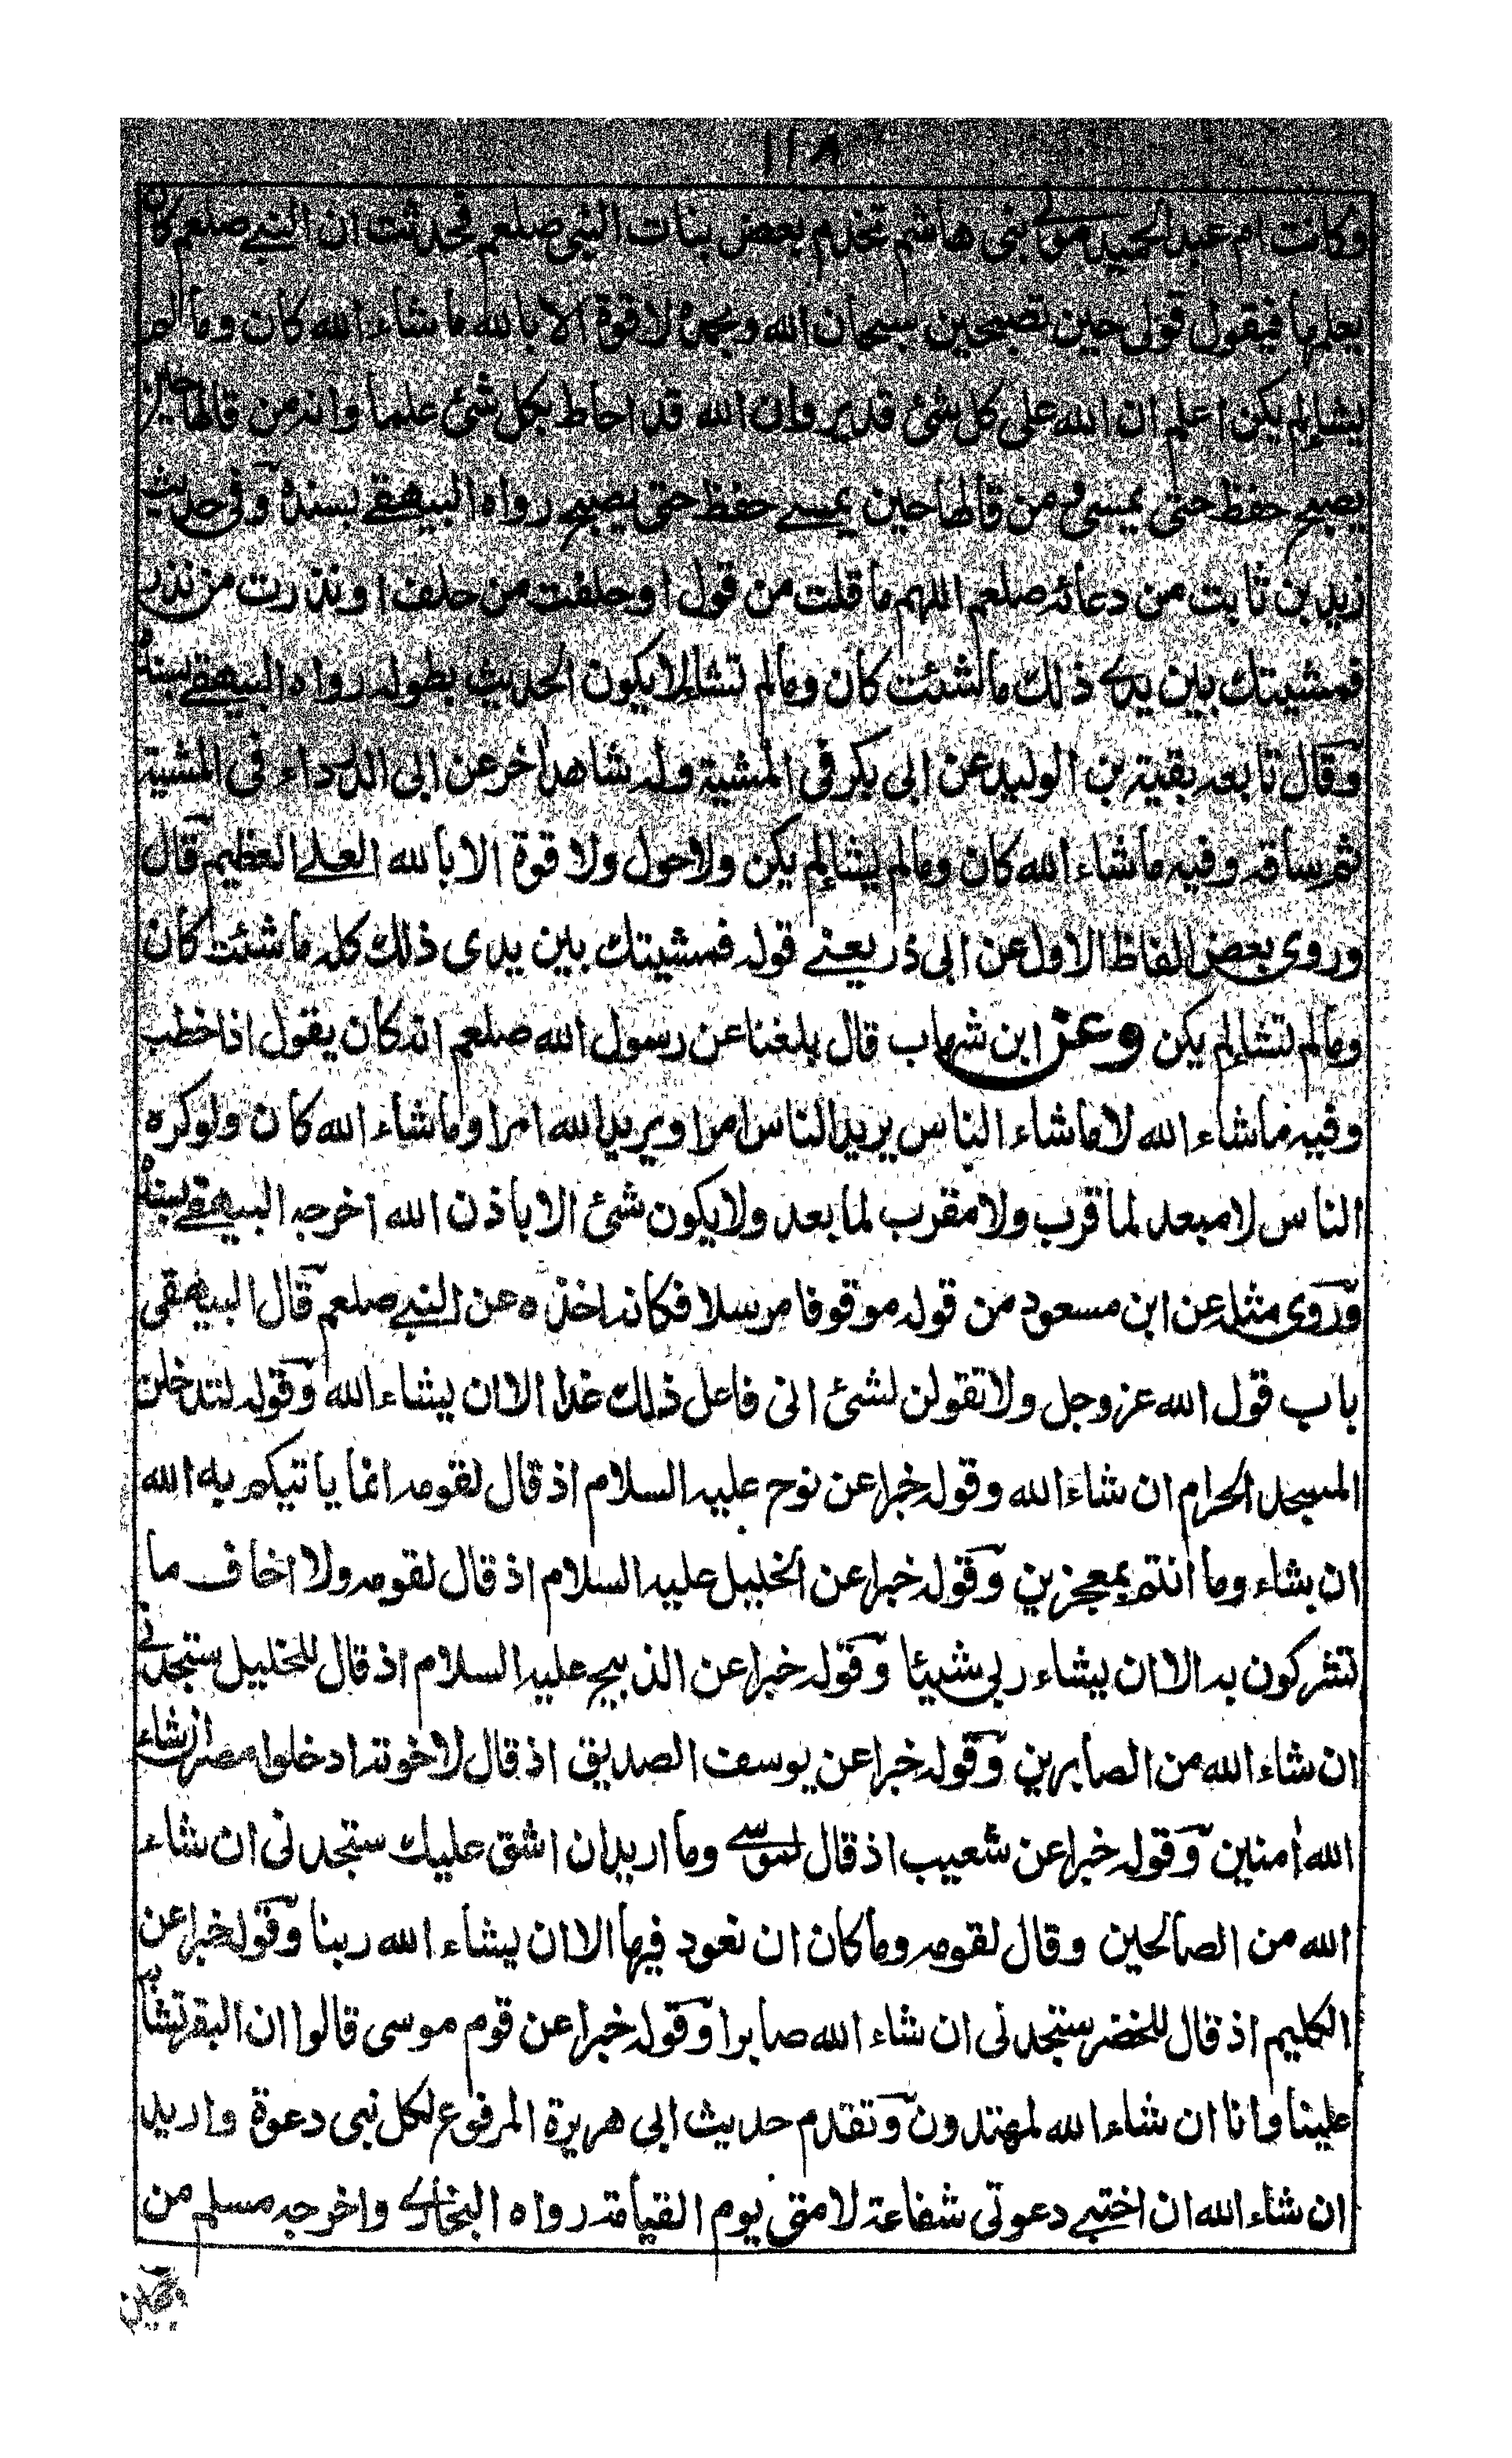 ١١٨
وكانت ام عبد الحميد مولى بنى هاشم تخدم بعض بنات النبى صلعم فحدثت ان النبى صلعم كان
يعلمها فيقول قولى حين تصبحين سبحان الله وبحمده لا قوة الا بالله ما شاء الله كان وما لم
يشا لم يكن اعلم ان الله على كل شئ قدير وان الله قد احاط بكل شئ علما وانه من قالها حين
يصبح حفظ حتى يمسى ومن قالها حين يمسى حفظ حتى يصبح رواه البيهقى بسنده وفى حديث
زيد بن ثابت من دعائه صلعم اللهم ما قلت من قول او حلفت من حلف او نذرت من نذر
فمشيتك بين يدى ذلك ما شئت كان وما لم تشا لا يكون الحديث بطوله رواه البيهقى بسنده
وقال تابعه بقية بن الوليد عن ابى بكر فى المشية وله شاهد اخر عن ابى الدرداء فى المشية
ثم ساقه وفيه ما شاء الله كان وما لم يشا لم يكن ولا حول ولا قوة الا بالله العلى العظيم قال
وروى بعض الفاظ الاول عن ابى ذر يعنى قوله فمشيتك بين يدى ذلك كله ما شئت كان
وما لم تشا لم يكن وعن ابن شهاب قال بلغنا عن رسول الله صلعم انه كان يقول اذا خطب
وفيه ما شاء الله لا ما شاء الناس يريد الناس امرا ويريد الله امرا وما شاء الله كان ولو كره
الناس لا مبعد لما قرب ولا مقرب لما بعد ولا يكون شئ الا باذن الله اخرجه البيهقى بسنده
وروى مثله عن ابن مسعود من قوله موقوفا مرسلا فكانه اخذه عن النبى صلعم قال البيهقى
باب قول الله عز وجل ولا تقولن لشئ انى فاعل ذلك غدا الا ان يشاء الله وقوله لتدخلن
المسجد الحرام ان شاء الله وقوله خبرا عن نوح عليه السلام اذ قال لقومه انما ياتيكم به الله
ان شاء وما انتم بمعجزين وقوله خبرا عن الخليل عليه السلام اذ قال لقومه ولا اخاف ما
تشركون به الا ان يشاء ربى شيئا وقوله خبرا عن الذبيح عليه السلام اذ قال للخليل ستجدنى
ان شاء الله من الصابرين وقوله خبرا عن يوسف الصديق اذ قال لاخوته ادخلوا مصر ان شاء
الله أمنين وقوله خبرا عن شعيب اذ قال لموسى وما اريد ان اشق عليك ستجدنى ان شاء
الله من الصالحين وقال لقومه وما كان ان نعود فيها الا ان يشاء الله ربنا وقوله خبرا عن
الكليم اذ قال للخضر ستجدنى ان شاء الله صابرا وقوله خبرا عن قوم موسى قالوا ان البقر تشابه
علينا وانا ان شاء الله لمهتدون وتقدم حديث ابى هريرة المرفوع لكل نبى دعوة واريد
ان شاء الله ان اختبى دعوتى شفاعة لامتى يوم القيامة رواه البخارى واخرجه مسلم من